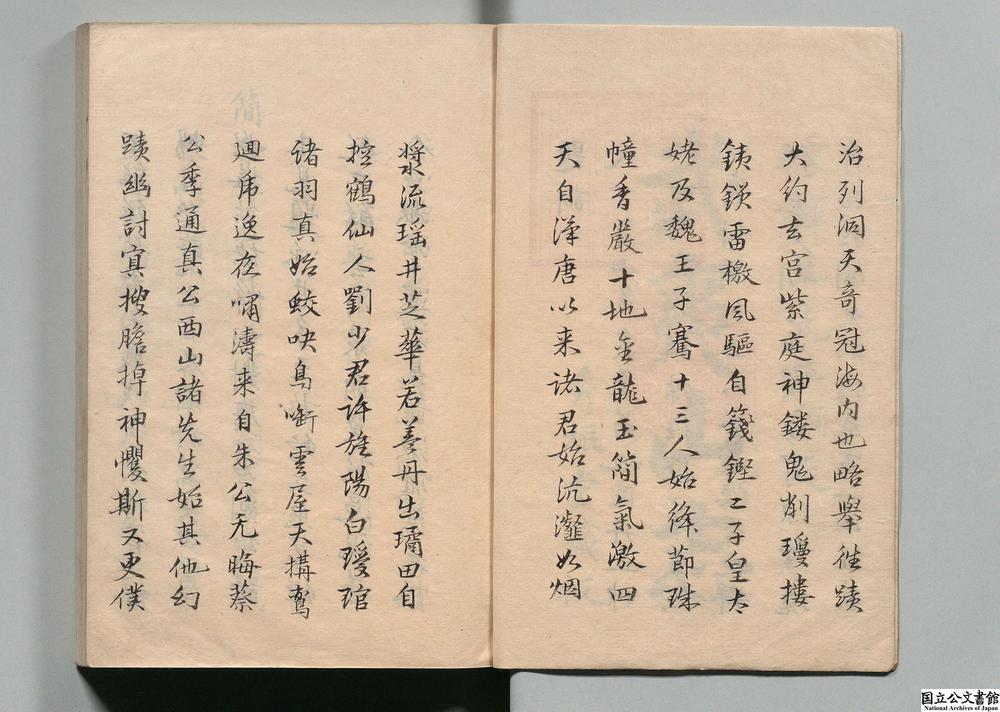 治列洞天奇冠海内也略舉往蹟
大約玄宮紫庭神鏤鬼削瓊摟
銕鎖雷檄風驅自籛鏗二子皇太
姥及魏王子騫十三人始絳節珠
幢香嚴十地金龍玉簡氣激四
天自漢唐以来诸君始沆瀣如烟
漿流瑶井芝華若蓋丹出璚田自
控鶴仙人劉少君许旌陽白瓊琯
诸羽真始蛟吷鳥噺雲屋天搆鸞
迴帍逸在嘯濤来自朱公元晦蔡
公季通真公西山諸先生始其他幻
蹟幽討冥搜膽掉神懼斯又更僕
国立公文書館
National Archives of Japan